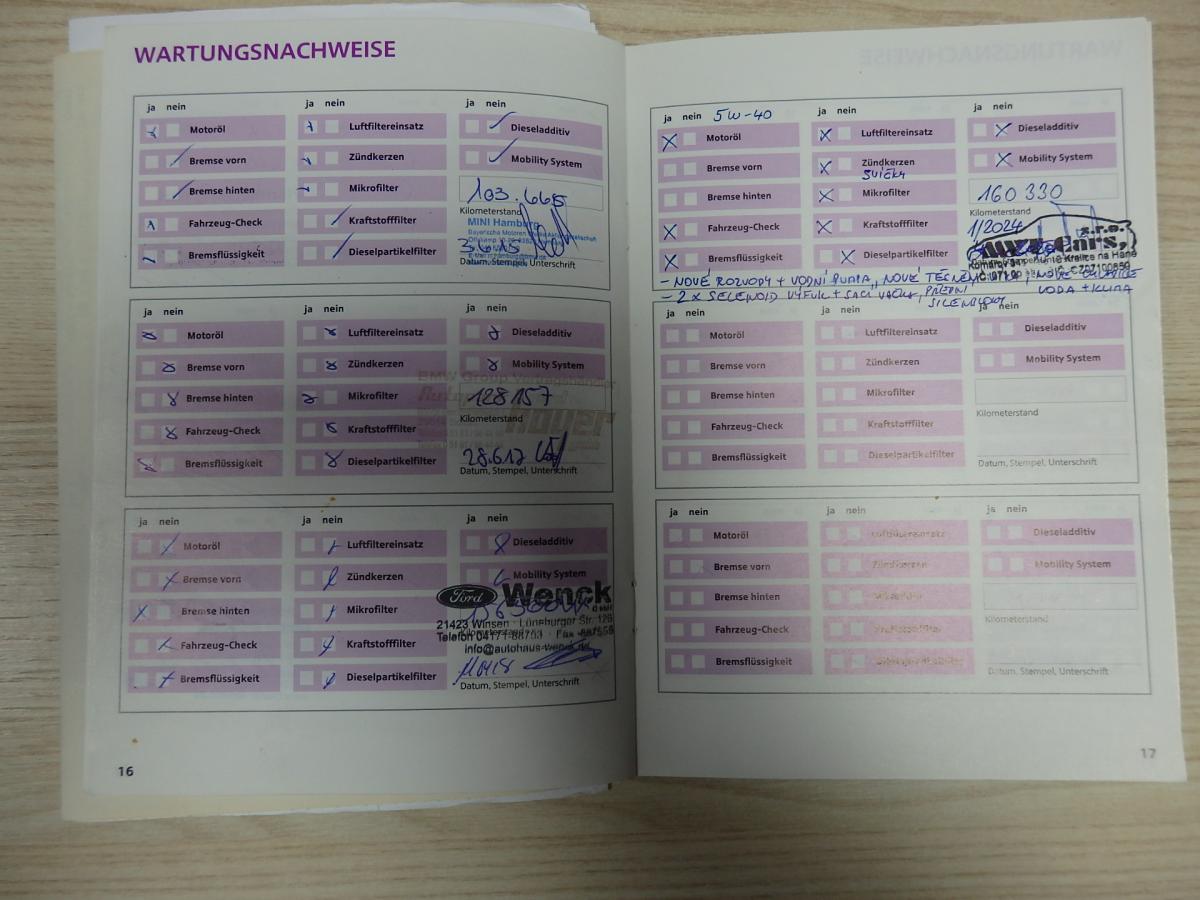 WARTUNGSNACHWEISE
ja nein
Motoröl
Bremse vorn
Bremse hinten
Fahrzeug-Check
Bremsflüssigkeit
ja nein
Luftfiltereinsatz
Zündkerzen
Mikrofilter
Kraftstofffilter
Dieselpartikelfilter
ja nein
Dieseladditiv
Mobility System
103.665
Kilometerstand
MINI Hamburg
3.6.15
Datum, Stempel, Unterschrift
ja nein
Motoröl
Bremse vorn
Bremse hinten
Fahrzeug-Check
Bremsflüssigkeit
ja nein
Luftfiltereinsatz
Zündkerzen
Mikrofilter
Kraftstofffilter
Dieselpartikelfilter
ja nein
Dieseladditiv
Mobility System
BMW Group Vertragshändler
128157
Kilometerstand
28.6.17
Datum, Stempel, Unterschrift
ja nein
Motoröl
Bremse vorn
Bremse hinten
Fahrzeug-Check
Bremsflüssigkeit
ja nein
Luftfiltereinsatz
Zündkerzen
Mikrofilter
Kraftstofffilter
Dieselpartikelfilter
ja nein
Dieseladditiv
Mobility System
Ford Wenck
21423 Winsen · Lüneburger Str.
Telefon 04171-88703 · Fax
info@autohaus-wenck.de
Datum, Stempel, Unterschrift
16
ja nein 5W-40
Motoröl
Bremse vorn
Bremse hinten
Fahrzeug-Check
Bremsflüssigkeit
ja nein
Luftfiltereinsatz
Zündkerzen
SVÍČKY
Mikrofilter
Kraftstofffilter
Dieselpartikelfilter
ja nein
Dieseladditiv
Mobility System
160 330
Kilometerstand
1/2024
s.r.o.
Cars,
Kralice na Hané
- NOVÉ ROZVODY + VODNÍ PUMPA, NOVÉ
- 2 x SELENOID VÝFUK + SACÍ VAČKA, PŘEDNÍ VODA + KLIMA
SILENBLOKY
ja nein
Motoröl
Bremse vorn
Bremse hinten
Fahrzeug-Check
Bremsflüssigkeit
ja nein
Luftfiltereinsatz
Zündkerzen
Mikrofilter
Kraftstofffilter
Dieselpartikelfilter
ja nein
Dieseladditiv
Mobility System
Kilometerstand
Datum, Stempel, Unterschrift
ja nein
Motoröl
Bremse vorn
Bremse hinten
Fahrzeug-Check
Bremsflüssigkeit
ja nein
Luftfiltereinsatz
Zündkerzen
Mikrofilter
Kraftstofffilter
Dieselpartikelfilter
ja nein
Dieseladditiv
Mobility System
Kilometerstand
Datum, Stempel, Unterschrift
17